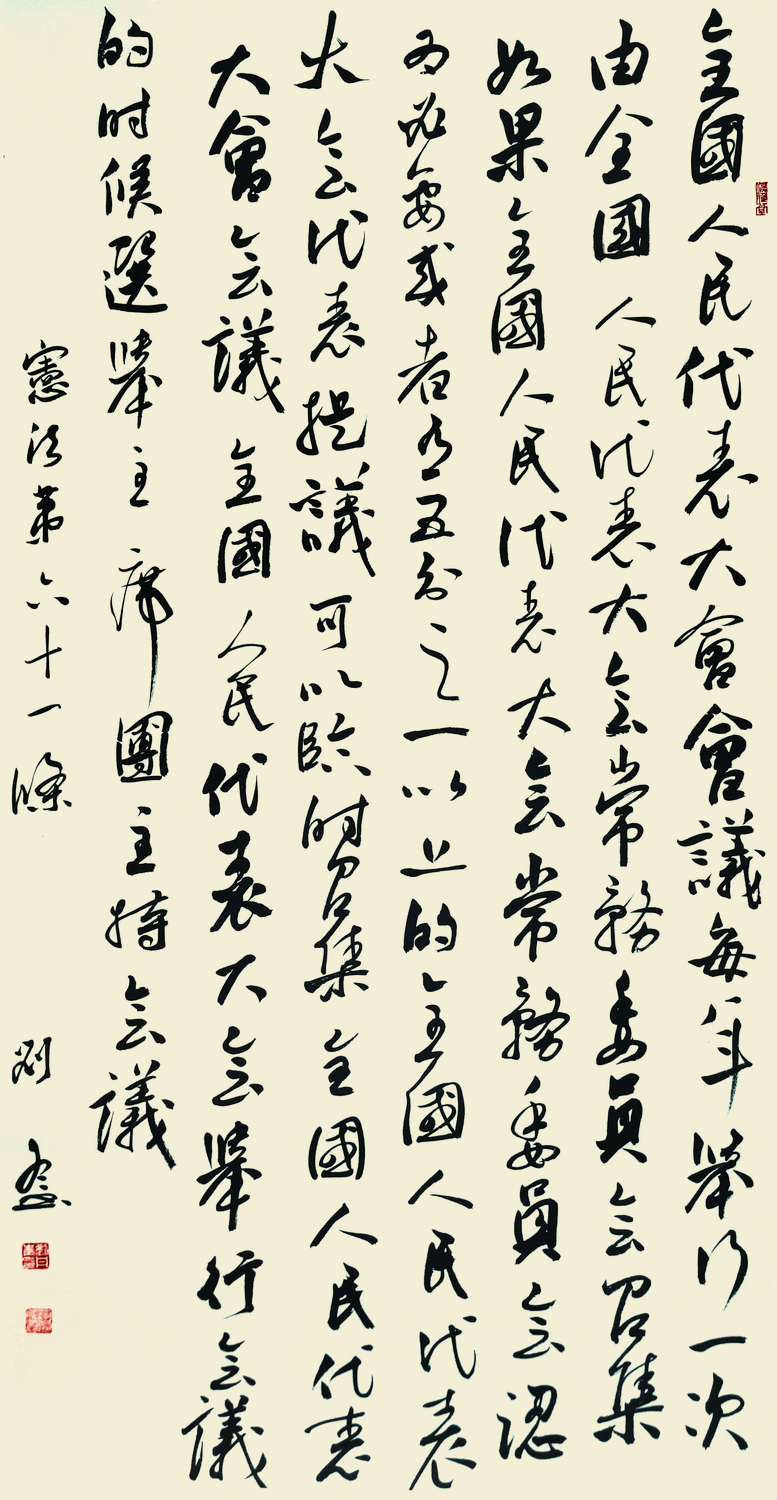 全國人民代表大會會議每年舉行一次
由全國人民代表大会常務委員会召集
如果全國人民代表大会常務委員会認
为必要或者有五分之一以上的全國人民代表
大会代表提議可以臨时召集全國人民代表
大會会議全國人民代表大会舉行会議
的时候選舉主席團主持会議
憲法第六十一條
劉